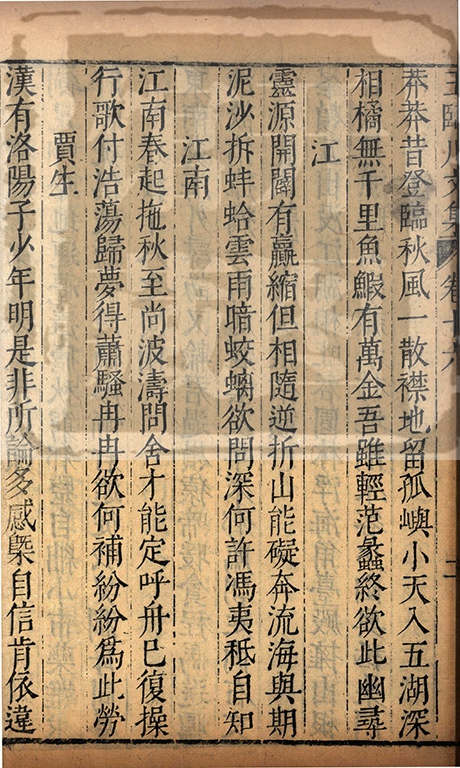 王臨川文集 卷十六
莽莽昔登臨秋風一散襟地留孤嶼小天入五湖深
相橘無千里魚鰕有萬金吾雖輕范蠡終欲此幽尋
江
靈源開闢有贏縮但相隨逆折山能礙奔流海與期
泥沙拆蚌蛤雲雨暗蛟螭欲問深何許馮夷秪自知
江南
江南春起拖秋至尚波濤問舍才能定呼舟已復操
行歌付浩蕩歸夢得蕭騷冉冉欲何補紛紛爲此勞
賈生
漢有洛陽子少年明是非所論多感槩自信肯依違